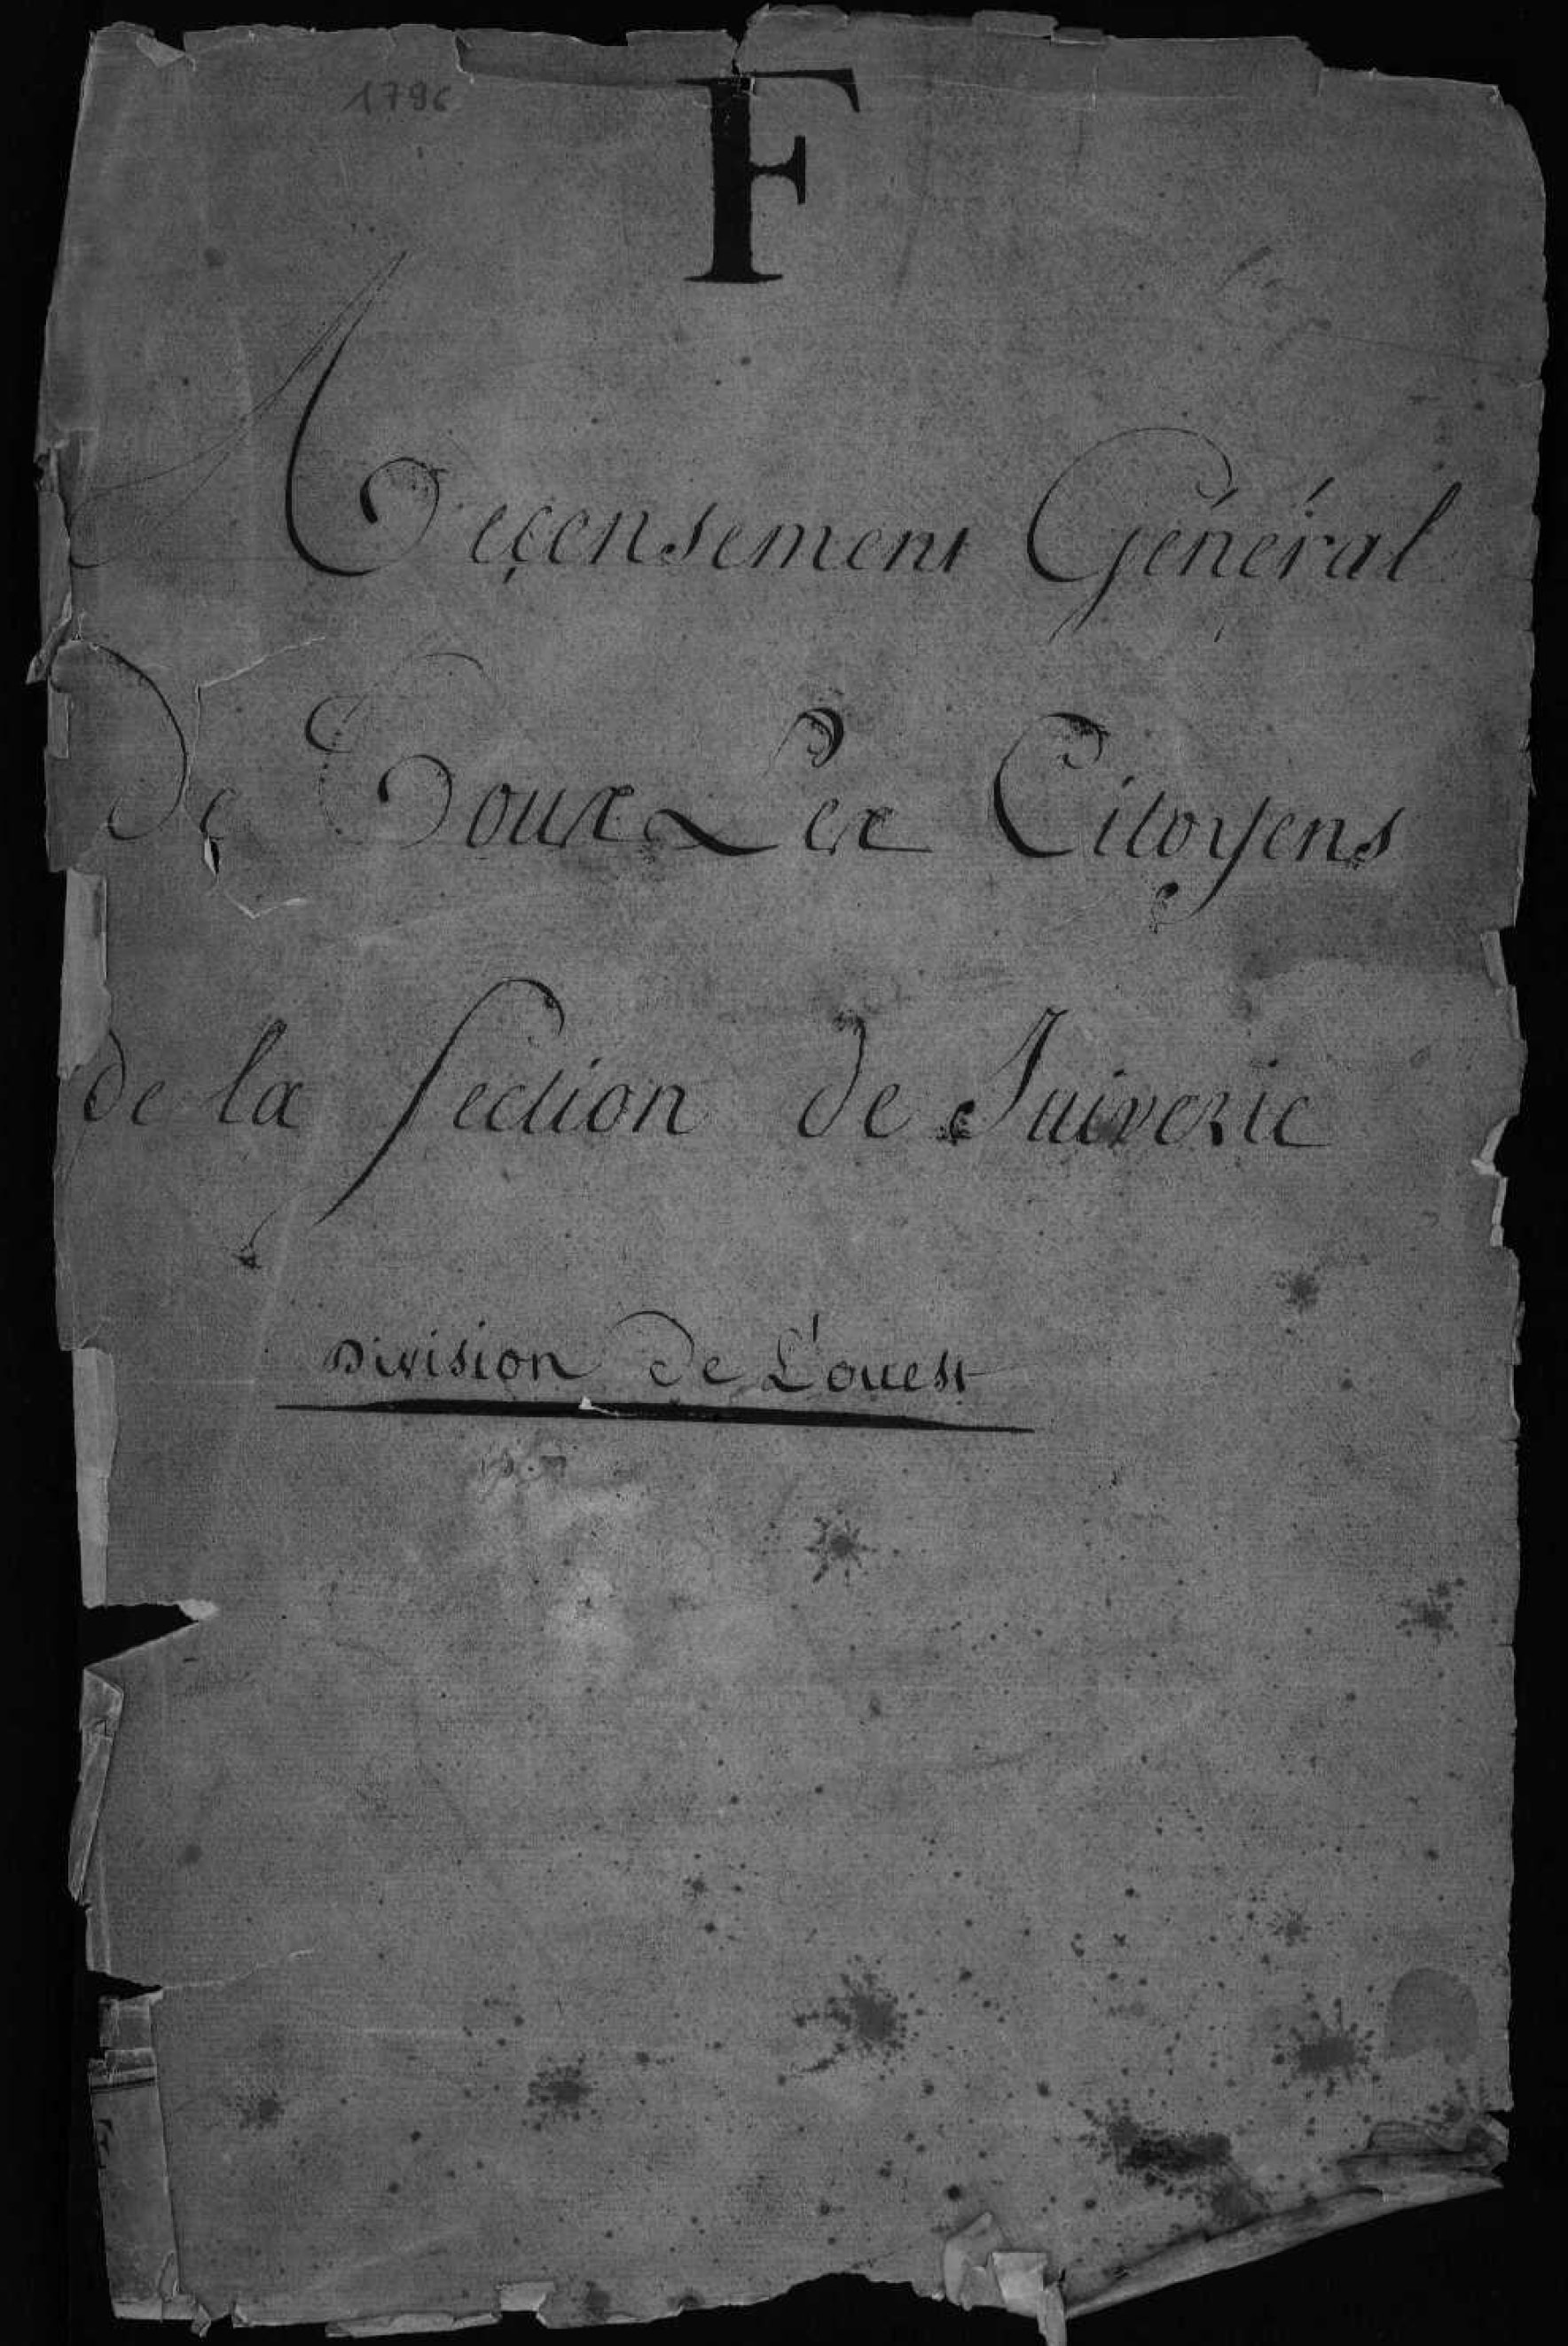 1796
F
Reçensement Général
De Toux Lex Citoyens
de la Section de Juiverie
Division de L'ouest